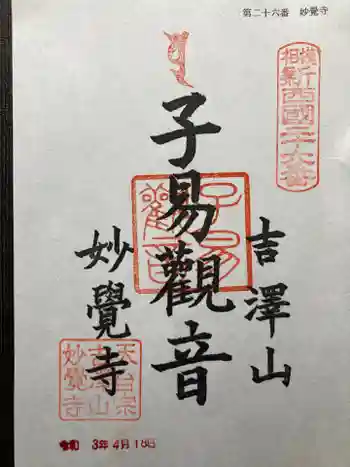 第二十六番 妙覺寺
相模新西國二十六番
子易觀音
吉澤山
妙覺寺
天台宗
吉澤山
妙覺寺
令和 3年4月18日